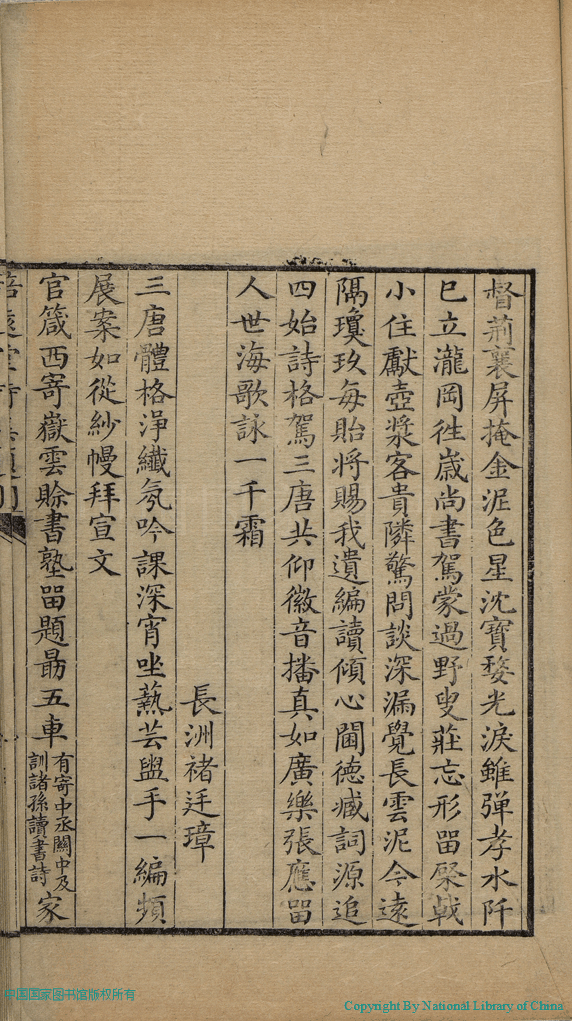 督荊襄屏掩金泥色星沈寶婺光淚雖彈孝水阡
已立瀧岡徃嵗尚書駕蒙過野叟莊忘形畱棨戟
小住獻壺漿客貴隣驚問談深漏覺長雲泥今遠
隔瓊玖每貽將賜我遺編讀傾心閫德臧詞源追
四始詩格駕三唐共仰徽音播真如廣樂張應畱
人世海歌詠一千霜
長洲褚廷璋
三唐體格淨纖氛吟課深宵坐爇芸盥手一編頻
展案如從紗幔拜宣文
官箴西寄嶽雲賒書塾畱題最五車有寄中丞關中及訓諸孫讀書詩家
中国国家图书馆版权所有
Copyright By National Library of China